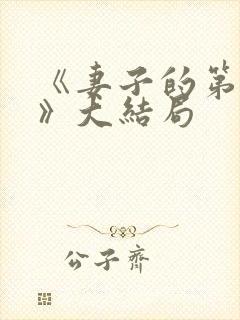 《妻子的第
》大结局
公子齐